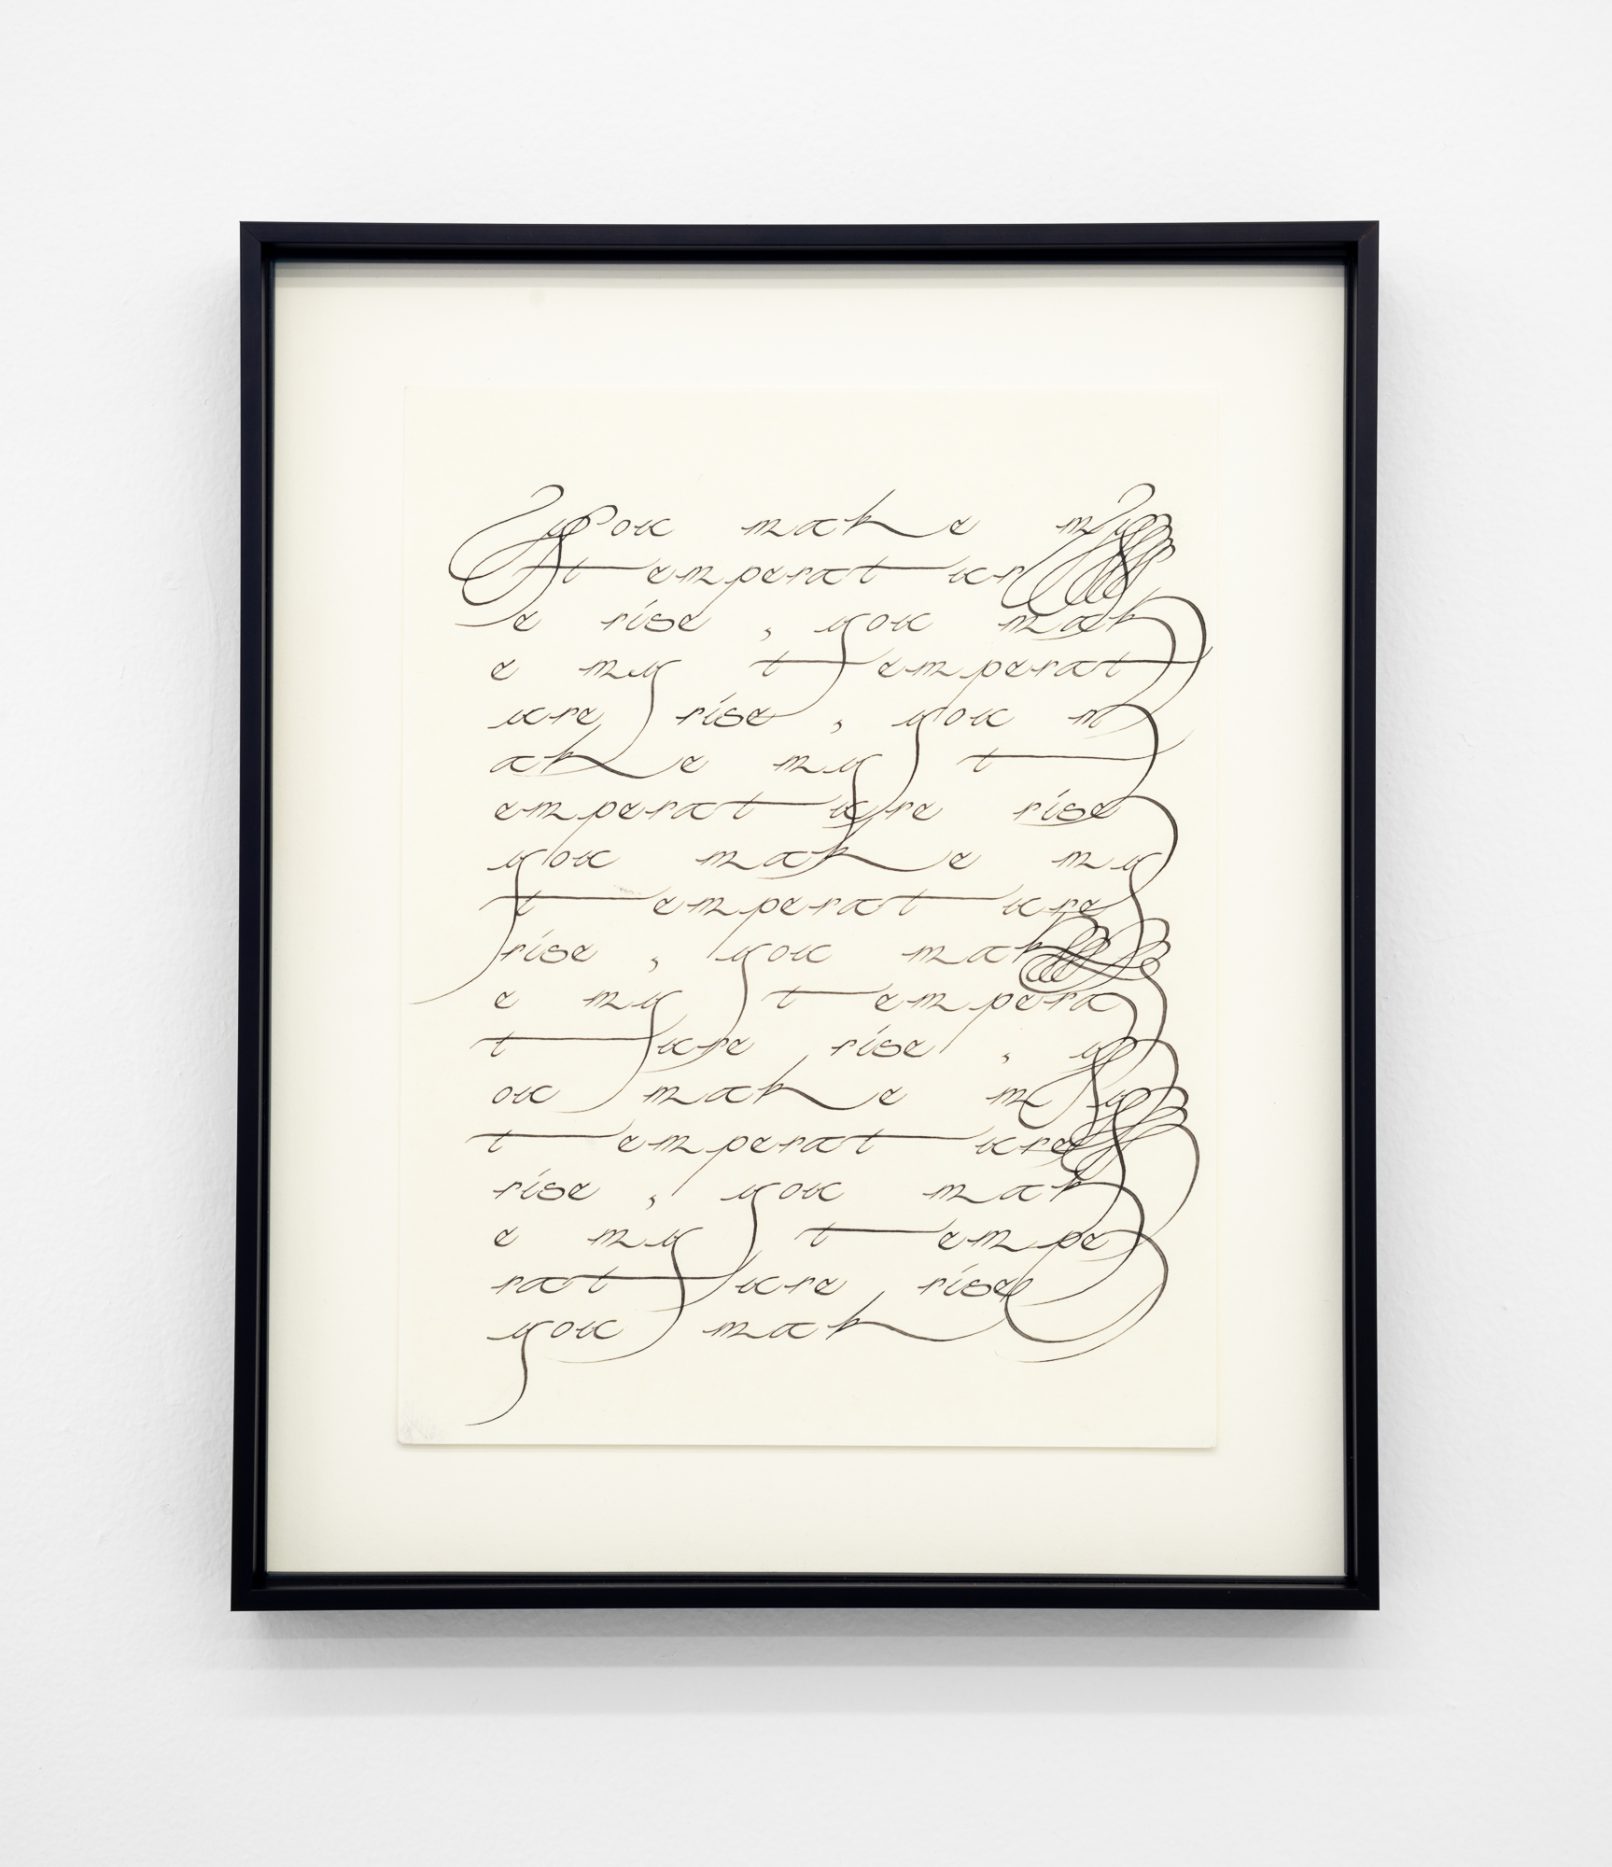 you make my
temperatur
e rise , you mak
e my temperat
ure rise , you m
ake my t
emperature rise
you make my
temperature
rise , you mak
e my tempera
ture rise , y
ou make my
temperature
rise , you mak
e my tempe
rature rise
you mak